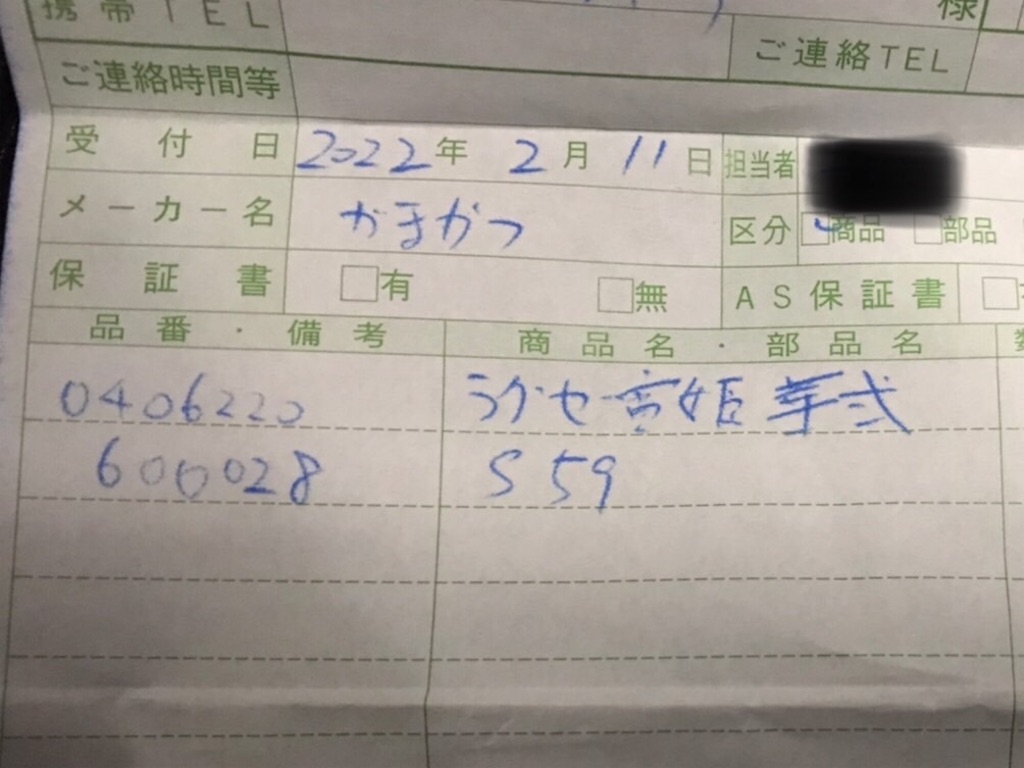 携帯TEL
様
ご連絡TEL
ご連絡時間等
受付日 2022年 2月 11日 担当者
メーカー名 がまかつ 区分 商品 部品
保証書 有 無 AS保証書
品番・備考 商品名・部品名
0406220 ラグゼ 宵姫 華弐
600028 S59